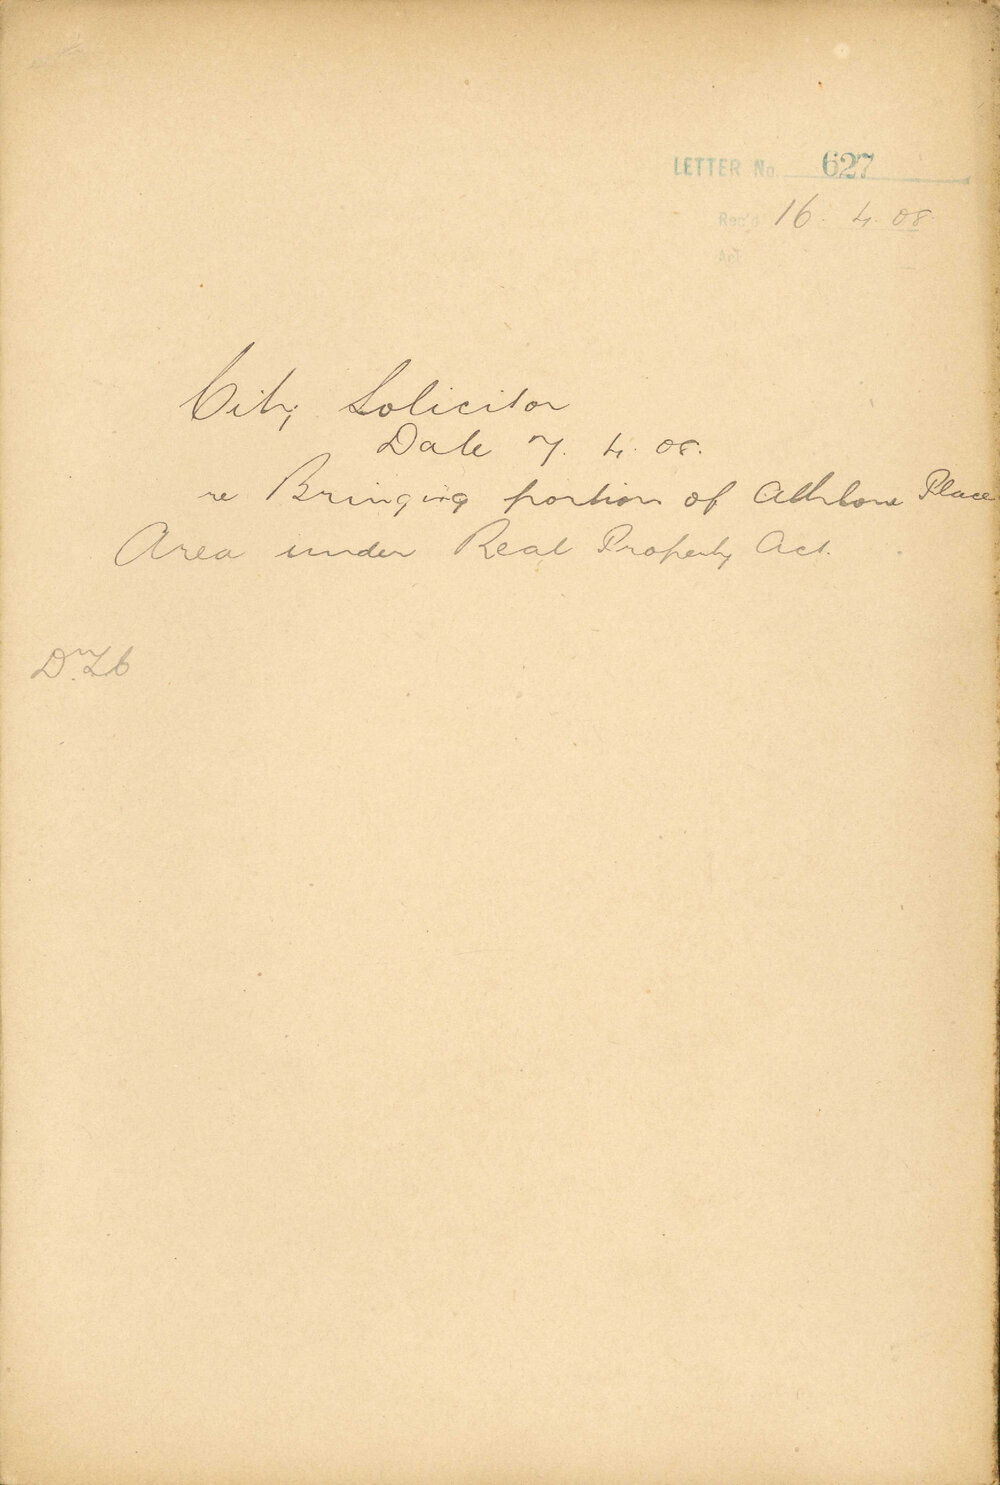 LETTER No. 627
Rec'd 16. 4. 08
City Solicitor
Date 7. 4. 08.
re Bringing portion of Athlone Place
Area under Real Property Act.